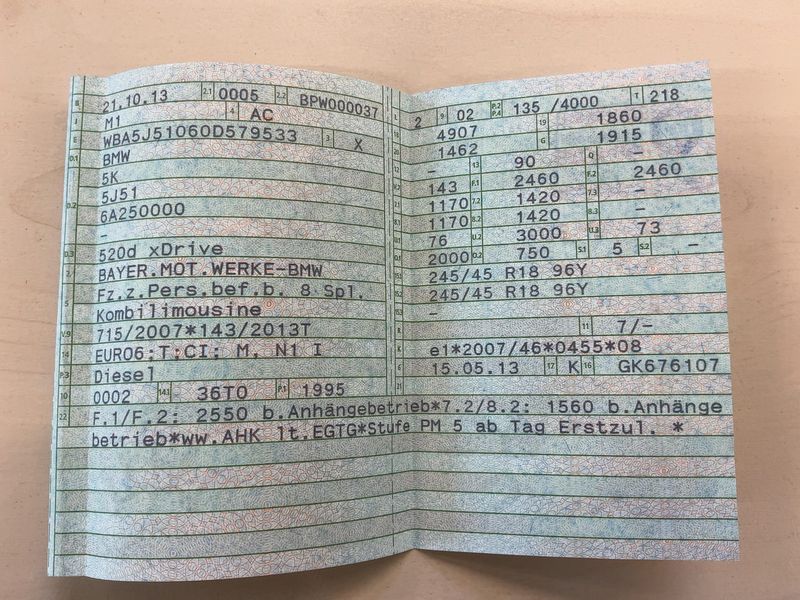 B 21.10.13 2.1 0005 2.2 BPW000037
J M1 4 AC
E WBA5J51060D579533 3 X
D.1 BMW
5K
D.2 5J51
6A250000
-
D.3 520d xDrive
2 BAYER.MOT.WERKE-BMW
Fz.z.Pers.bef.b. 8 Spl.
5 Kombilimousine
V.9 715/2007*143/2013T
14 EURO6;T;CI; M, N1 I
P.3 Diesel
10 0002 14.1 36T0 P.1 1995
L 2 9 02 P.2 P.4 135 /4000 T 218
18 4907 19 1860
20 1462 G 1915
12 - 13 90 Q -
143 F.1 2460 F.2 2460
1170 7.2 1420 7.3 -
1170 8.2 1420 8.3 -
76 U.2 3000 U.3 73
2000 O.2 750 S.1 5 S.2 -
245/45 R18 96Y
245/45 R18 96Y
-
R 11 7/-
K e1*2007/46*0455*08
6 15.05.13 17 K 16 GK676107
21
22 F.1/F.2: 2550 b.Anhängebetrieb*7.2/8.2: 1560 b.Anhänge
betrieb*ww.AHK lt.EGTG*Stufe PM 5 ab Tag Erstzul. *